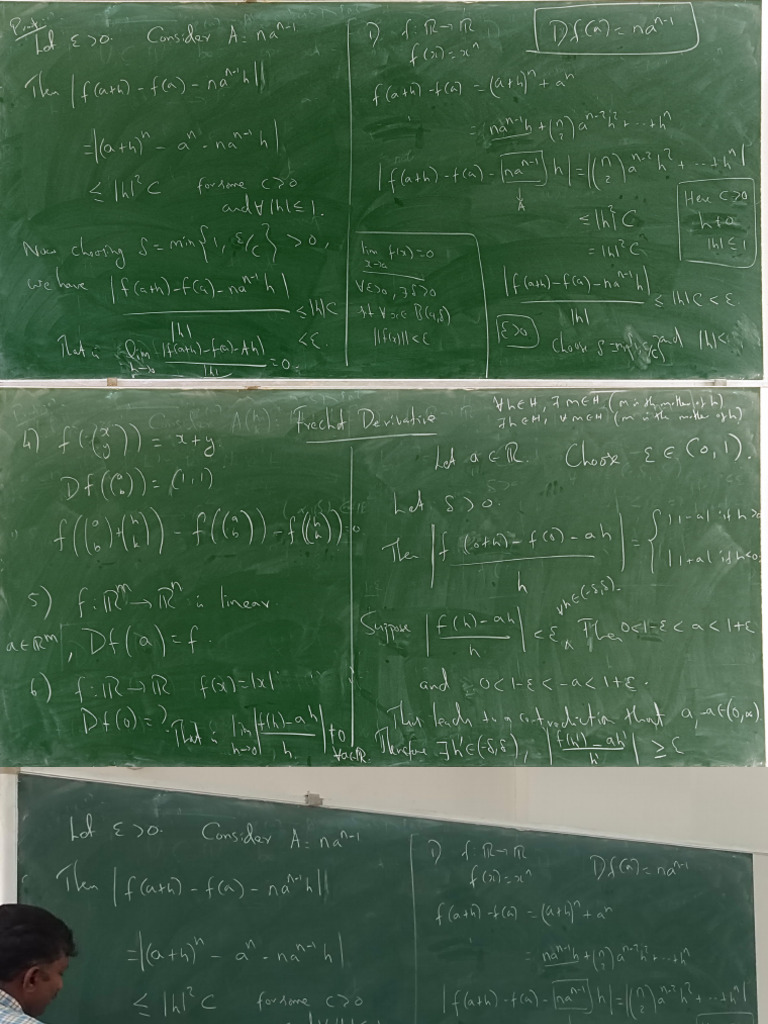 Proof:
Let ε>0. Consider A = na^{n-1}
Then |f(a+h) - f(a) - na^{n-1}h|
= |(a+h)^n - a^n - na^{n-1}h|
≤ |h|^2 C for some C≥0
and ∀|h|≤1.
Now choosing δ = min{1, ε/C} > 0,
we have |f(a+h) - f(a) - na^{n-1}h| / |h| ≤ |h|C
< ε.
That is lim_{h→0} |f(a+h) - f(a) - Ah| / |h| = 0.
1) f: ℝ → ℝ
f(x) = x^n
Df(a) = na^{n-1}
f(a+h) - f(a) = (a+h)^n + a^n
= na^{n-1}h + (n 2) a^{n-2}h^2 + ... + h^n
|f(a+h) - f(a) - na^{n-1} h| = |(n 2) a^{n-2}h^2 + ... + h^n|
A
≤ |h|^2 C
= |h|^2 C
Here C>0
h≠0
|h|≤1
lim_{x→a} f(x) = 0
∀ε>0, ∃δ>0
st ∀x∈B(a,δ)
||f(x)|| < ε
|f(a+h) - f(a) - na^{n-1}h| / |h| ≤ |h|C < ε.
ε>0
Choose δ = and |h|<
Frechet Derivative
∀h∈H, ∃m∈H (m is the mother of h)
∃h∈H, ∀m∈H (m is the mother of h)
4) f((x y)) = x+y
Df((a b)) = (1, 1)
f((a b)+(h k)) - f((a b)) - f((h k)) = 0
5) f: ℝ^m → ℝ^n is linear.
a∈ℝ^m, Df(a) = f.
6) f: ℝ → ℝ f(x) = |x|
Df(0) = ?
That is lim_{h→0} |f(h) - ah / h| ≠ 0 ∀a∈ℝ.
Let a∈ℝ. Choose ε∈(0,1).
Let δ>0.
Then |f(0+h) - f(0) - ah / h| = { |1-a| if h>0
|1+a| if h<0
Suppose |f(h) - ah / h| < ε, ∀h∈(-δ,δ). Then 0<1-ε<a<1+ε
and 0<1-ε<-a<1+ε.
This leads to a contradiction that a, -a∈(0,∞)
Therefore ∃h'∈(-δ,δ), |f(h') - ah' / h'| ≥ ε
Let ε>0. Consider A = na^{n-1}
Then |f(a+h) - f(a) - na^{n-1}h|
= |(a+h)^n - a^n - na^{n-1}h|
≤ |h|^2 C for some C≥0
1) f: ℝ → ℝ
f(x) = x^n
Df(a) = na^{n-1}
f(a+h) - f(a) = (a+h)^n + a^n
= na^{n-1}h + (n 2) a^{n-2}h^2 + ... + h^n
|f(a+h) - f(a) - na^{n-1} h| = |(n 2) a^{n-2}h^2 + ... + h^n|